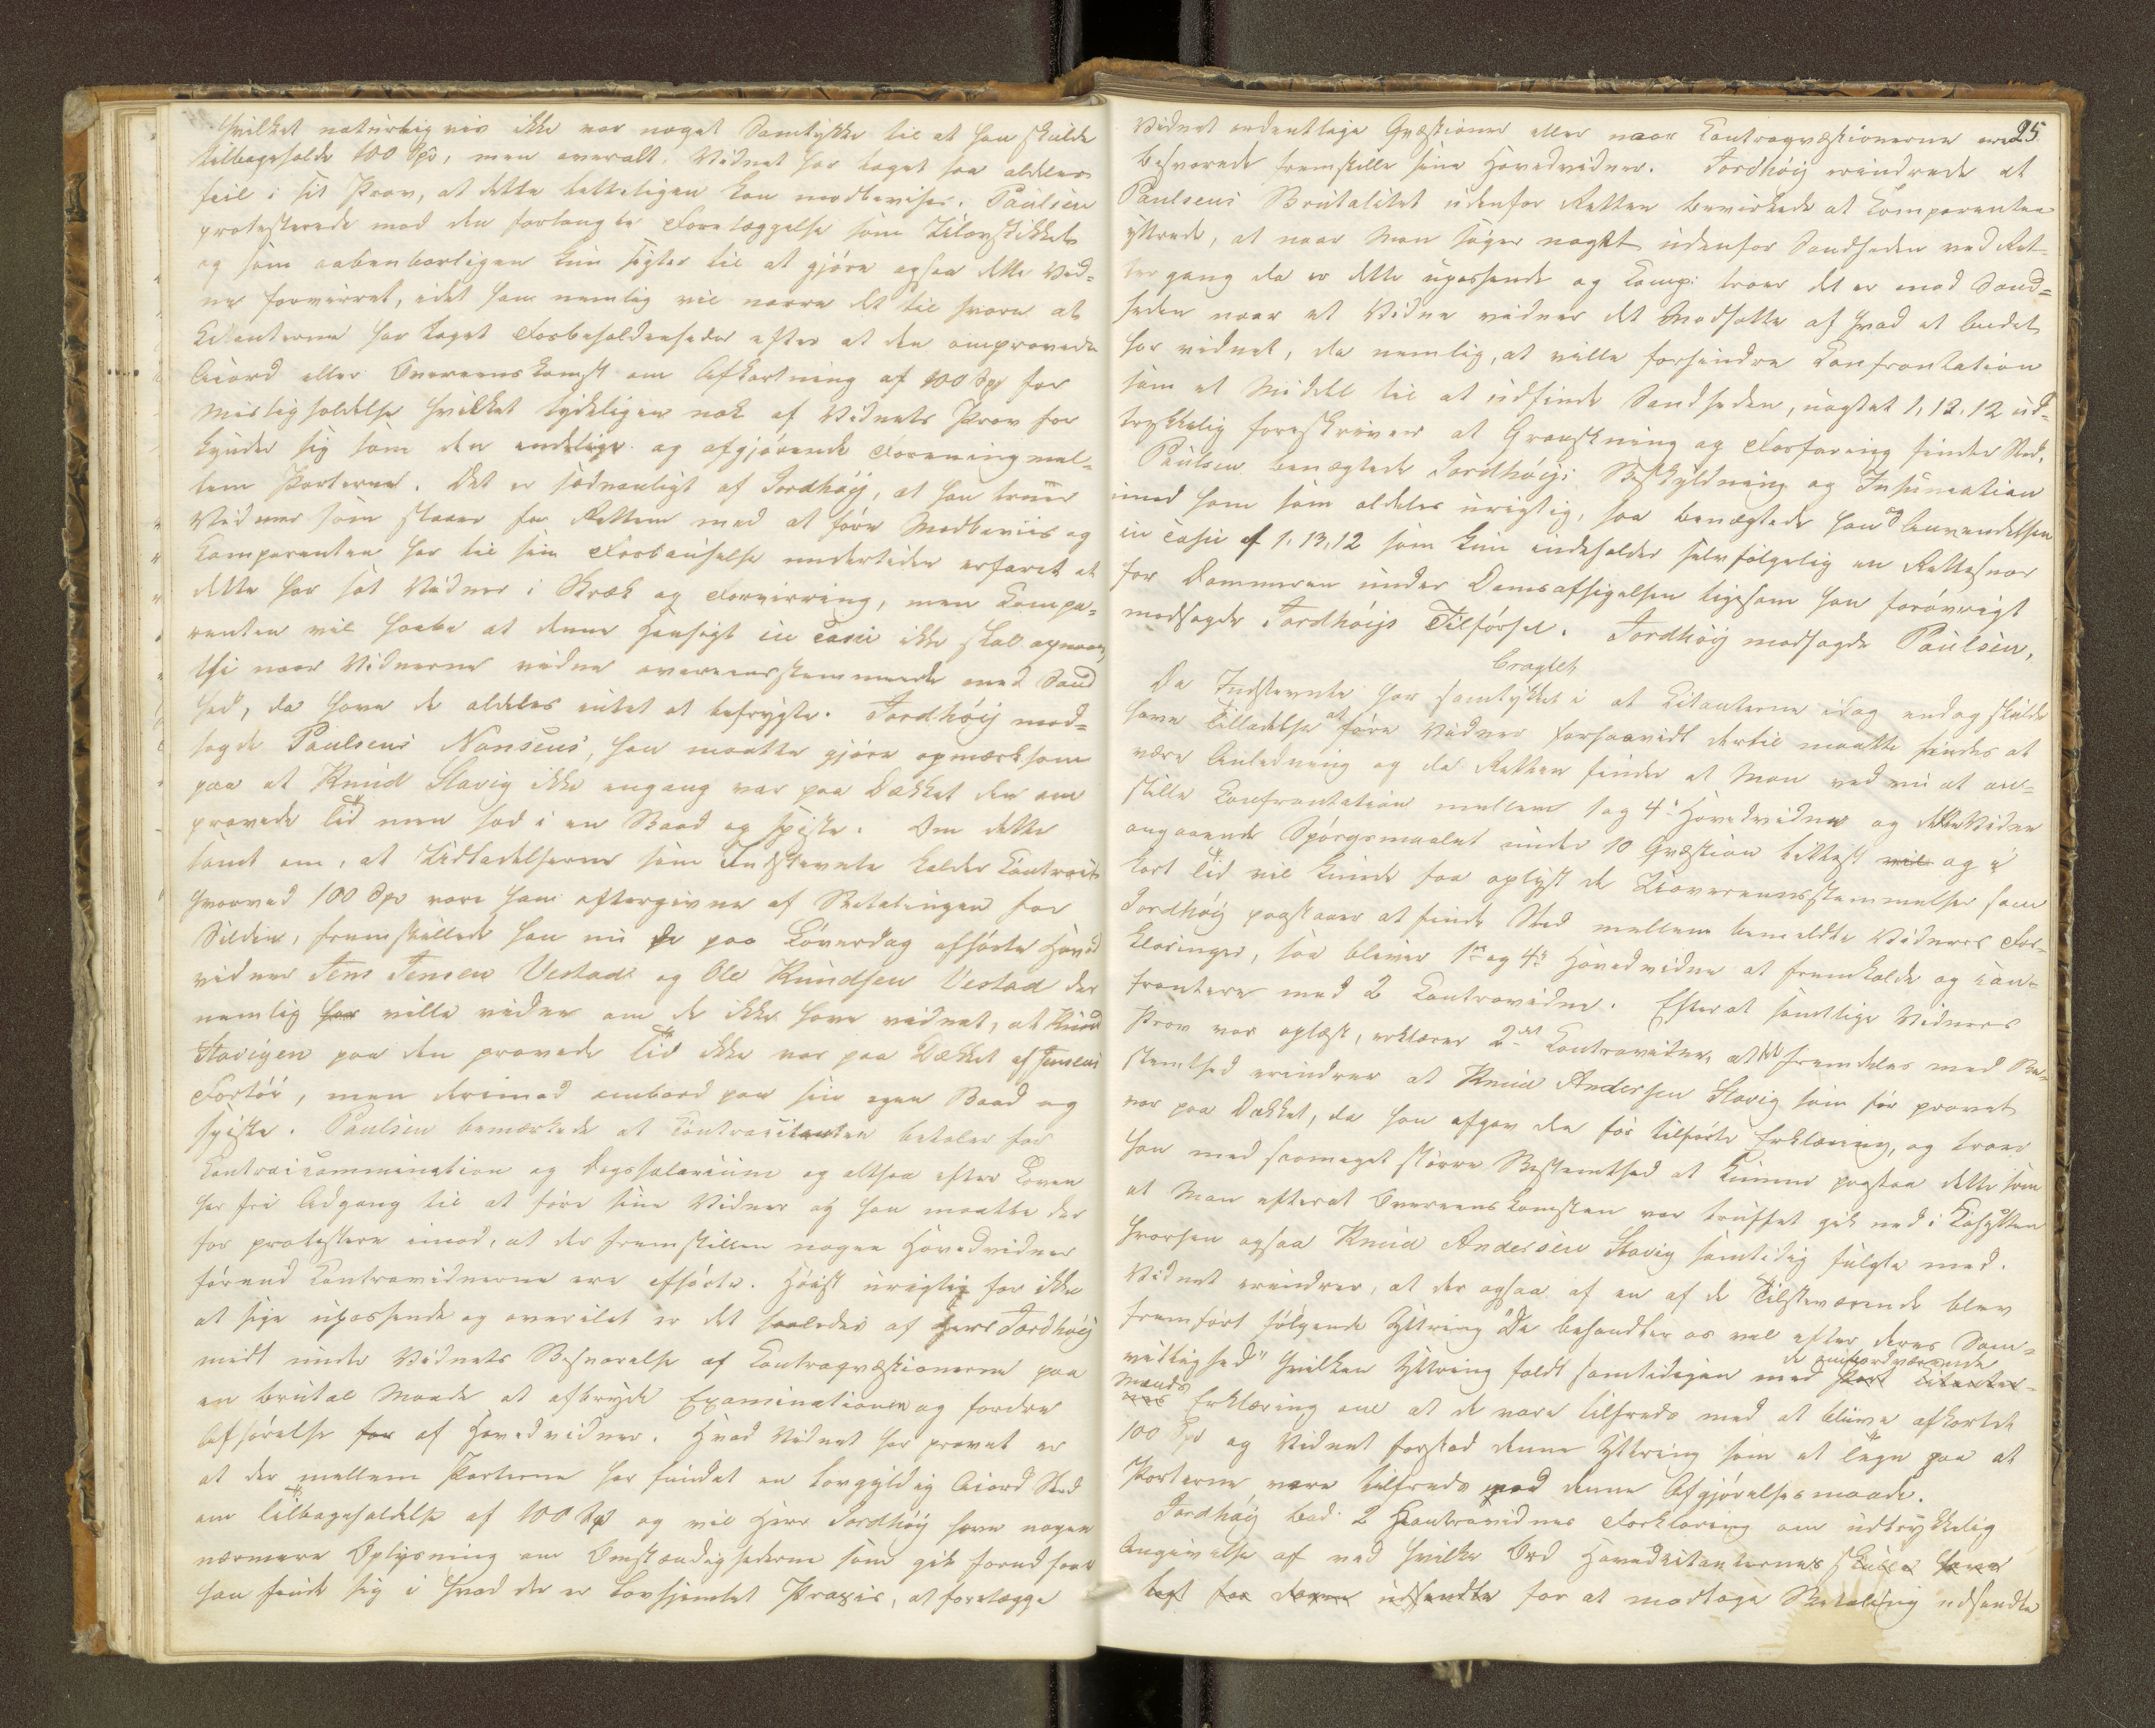 hvilket naturligvis ikke var noget Samtykke til at han skulde
tilbageholde 100 Spd, men overalt. Vidnet har taget saa aldeles
feil i sit Prov, at dette letteligen kan modbevises. Paulsen
protesterede mod den forlangte Forelæggelse som
og som aabenbarligen kun sigter til at gjöre ogsaa dette Vid-
ne forvirret, idet han nemlig vil narre det til svare at
Citanterne har taget Forbeholdenheder efter at den omprovede
Accord eller Overeenskomst om Afkortning af 100 Spd for
Misligholdelse hvilket tydeligen nok af Vidnets Prov for
kynder sig som den endelige og afgjörende Forening mel-
lem Parterne. Det er sædvanligt af Jordhöij, at han truer
Vidner som staaer for Retten med at före Modbeviis og
Comparenten har til sin Forbauselse undertiden erfaret at
dette har sat Vidner i Skræk og Forvirring, men Compa-
renten vil haabe at denne Hensigt in casu ikke skal opnaaes,
thi naar Vidnerne vidne overeensstemmende med Sand
hed, da have de aldeles intet at befrygte. Jordhöij mod-
sagde Paulsens Nonsens, han maatte gjöre opmærksom
paa at Knud Slavig ikke engang var paa Dækket den om
provede Tid men sad i en Baad og spiste. Om dette
samt om, at som Indstevnte kalder Contract
hvorved 100 Spd vare ham eftergivne af Betalingen for
Silden, fremstillede han nu de paa Löverdag afhörte Hoved
vidner Jens Jensen Vestad og Ole Knudsen Vestad der
nemlig har ville vidne om de ikke have vidnet, at Knud
Slavigen paa den provede Tid ikke var paa Dækket af Jensens
Fartöi, men derimod ombord paa sin egen Baad og
spiste. Paulsen bemærkede at Contracitanten betaler for
Contraicommination og Dagssalarium og altsaa efter Loven
har fri Adgang til at före sine Vidner og han maatte der
for protestere imod, at der fremstilles nogen Hovedvidner
förend Contravidnerne ere afhörte. Höist urigtig for ikke
at sige upassende og overilet er det saaledes af Herr Jordhöij
midt under Vidnets Besvarelse af Contraqvæstionerne paa
en brutal Maade at afbryde Examinationen og fordre
Afhörelse for af Hovedvidner. Hvad Vidnet har provet er
at der mellem Parterne har fundet en lovgyldig Accord Sted
om Tilbageholdelse af 100 Spd og vil Herr Jordhöij have nogen
nærmere Oplysning om Omstændighederne som gik forud saa
han finde sig i hvad der er Lovhjemlet Praxis, at forelægge
25
Vidnet ordentlige Qvæstioner eller naar Contraqvæstionerne ere
besvarede fremstille sine Hovedvidner. Jordhöij erindrede at
Paulsens Brutalitet udenfor Retten bevirkede at Comparenten
yttrede, at naar Man söger noget udenfor Sandheden ved Ret-
tergang da er dette upassende og Comp: troer det er mod Sand-
heden naar et Vidne vidner det Modsatte af hvad et andet
har vidnet, da nemlig, at ville forhindre Confrontation
som et Middel til at udfinde Sandheden, uagtet 1.13.12 ud-
trykkelig foreskriver at Granskning og Forfaring finder Sted.
Paulsen benægtede Jordhöijs Beskyldning og Insinuation
imod ham som aldeles urigtig, saa benægtede han og Anvendelsen
in casu af 1.13.12 som kun indeholder selvfölgelig en Rettesnor
for Dommeren under Domsafsigelsen ligesom han forövrigt
modsagde Jordhöijs Tilförsel. Jordhöij modsagde Paulsen.
Eragtet
Da Indstevnte har samtykket i at Citanterne idag endog skulde
have Tilladelse at före Vidner forsaavidt dertil maatte findes at
være Anledning og da Retten finder at Man ved nu at an-
stille Confrontation mellem 1 og 4de Hovedvidne og dette Vidne
angaaende Spörgsmaalet under 10 Qvæstion lettest vil og i
kort Tid vil kunde faa oplyst de Uoverensstemmelser som
Jordhöij paastaaer at finde Sted mellem bemeldte Vidners For-
klaringer, saa bliver 1ste og 4de Hovedvidne at fremkalde og con-
frontere med 2 Contravidne. Efterat samtlige Vidners
Prov var oplæst, erklærer 2det Contravidne, at det fremdeles med Be-
stemthed erindrer at Knud Andersen Slavig som för provet
var paa Dækket, da han afgav den för tilförte Erklæring, og troer
han med saameget större Bestemthed at kunne paastaa dette som
at Man efterat Overeenskomsten var truffet gik ned i Kahytten
hvorhen ogsaa Knud Andersen Slavig samtidig fulgte med.
Vidnet erindrer, at der ogsaa af en af de Tilstæværende blev
fremfört fölgende Yttring "De behandler os vel efter deres Sam-
vittighed" hvilken Yttring faldt samtidigen med
de ombordværende
Mænds Erklæring om at de vare tilfreds med at blive afkortet
100 Spd og Vidnet forstod denne Yttring som et Tegn paa at
Parterne vare tilfreds med denne Afgjörelsesmaade.
Jordhöij bad 2 Contravidnes Forklaring om udtrykkelig
Angivelse af ved hvilke Ord Hovedcitanternes skulle have
udsendte for at modtage Betaling udsendte